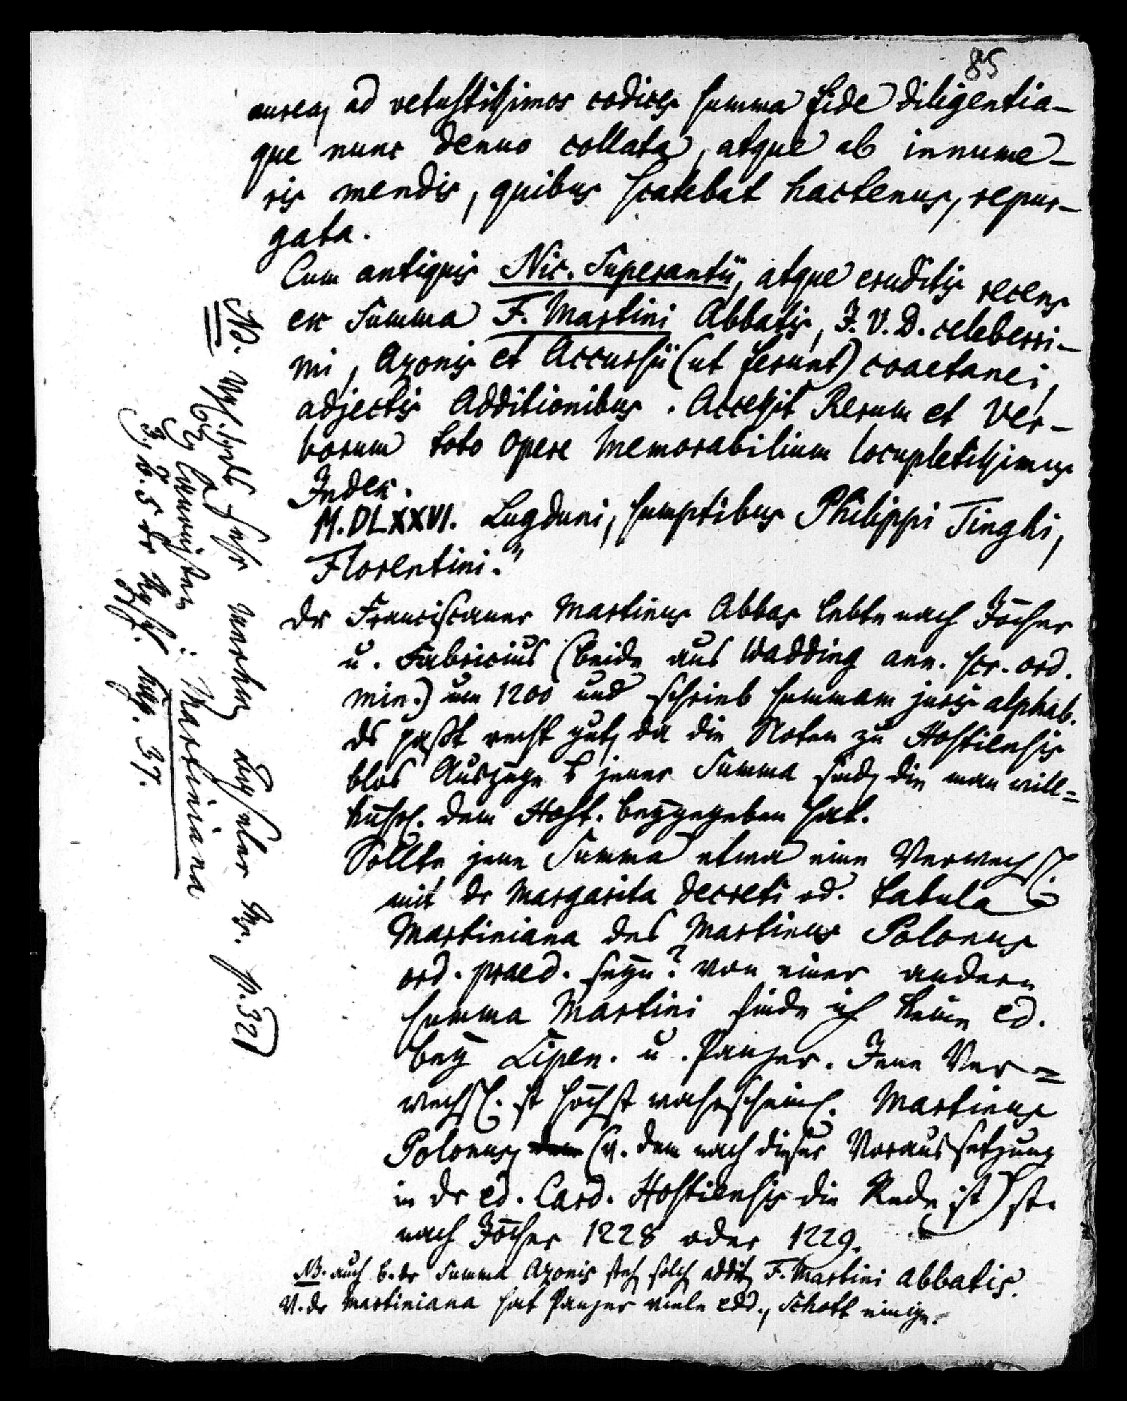 85
aurea, ad vetustissimos codices summa fide diligentia-
que nunc denuo collata, atque ab innume-
ris mendis, quibus scatebat hactenus, repur-
gata.
Cum antiquis Nic. Superantii, atque eruditis recens
ex Summa F. Martini Abbatis, J. V. D. celeberri-
mi, Azonis et Accursii (ut ferunt) coaetanei,
adjectis Additionibus. Accessit Rerum et Ver-
borum toto Opere Memorabilium locupletissimus
Index.
M.DLXXVI. Lugduni, sumptibus Philippi Tinghi,
Florentini."
Dr Franciscaner Martinus Abbas lebte nach Jöcher
u. Fabricius (beide aus Wadding ann. scr. ord.
min.) um 1200 und schrieb summam juris alphab.
ds paßt recht gut, da die Noten zu Hostiensis
blos Auszüge jener Summa sind, die man will=
kührl. dem Host. beygegeben hat.
Sollte jene Summa etwa eine Verwechsl.
mit dr Margarita decreti od. tabula
Martiniana des Martinus Polonus
ord. praed. seyn? von einer andern
summa Martini finde ich keine ed.
bey Lipen. u. Panzer. Jene Ver=
wechsl. ist höchst wahrscheinl. Martinus
Polonus, (v. dem nach dieser Voraussetzung
in dr ed. Card. Hostiensis die Rede ist) st.
nach Jöcher 1228 oder 1229.
NB. auch b. dr Summa Azonis steh. solch. addit. F. Martini abbatis.
V. dr Martiniana hat Panzer viele edd., Schott einige.
NB. sehr p. 327
bey Canonisten: Martiniana
37.